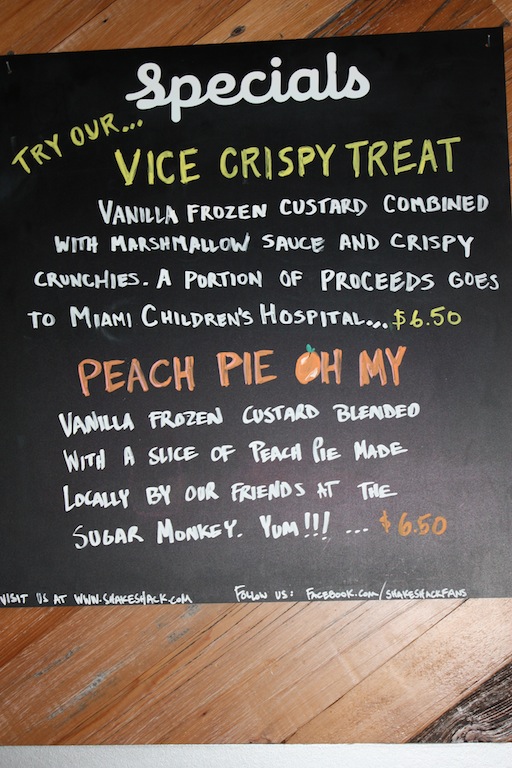 Specials
TRY OUR...
VICE CRISPY TREAT
VANILLA FROZEN CUSTARD COMBINED
WITH MARSHMALLOW SAUCE AND CRISPY
CRUNCHIES. A PORTION OF PROCEEDS GOES
TO MIAMI CHILDREN'S HOSPITAL... $6.50
PEACH PIE OH MY
VANILLA FROZEN CUSTARD BLENDED
WITH A SLICE OF PEACH PIE MADE
LOCALLY BY OUR FRIENDS AT THE
SUGAR MONKEY. YUM!!! ... $6.50
VISIT US AT WWW.SHAKESHACK.COM FOLLOW US: FACEBOOK.COM/SHAKESHACKFANS